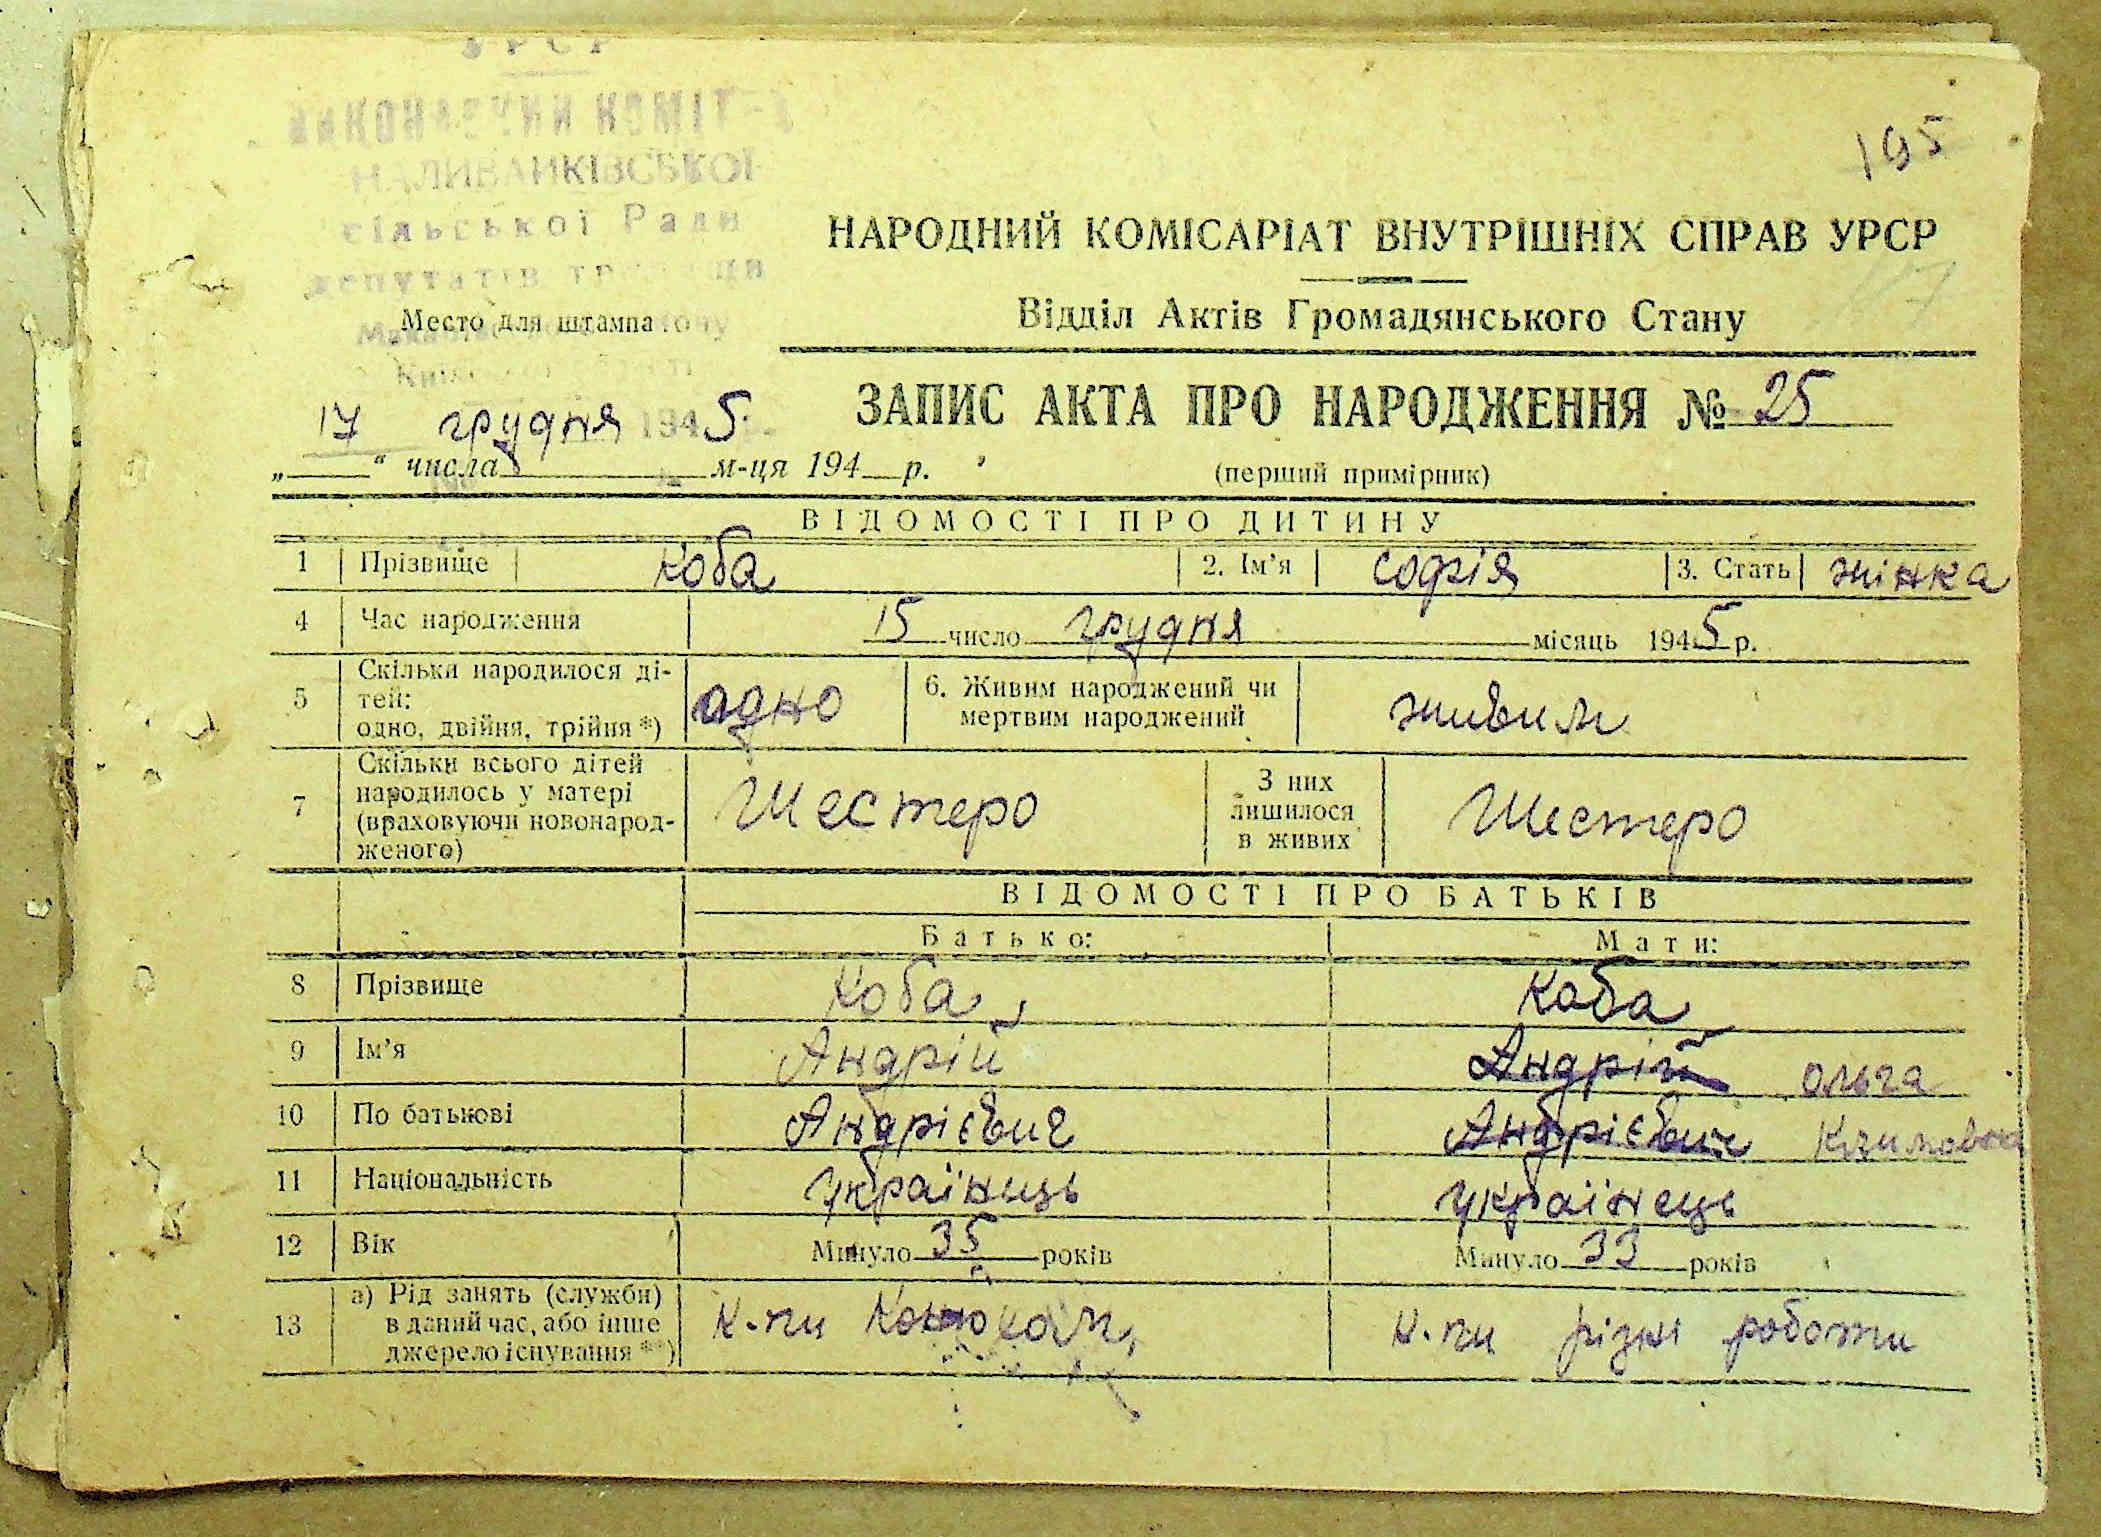 УРСР
ВИКОНАВЧИЙ КОМІТЕТ
НАЛИВАЙКІВСЬКОЇ
сільської Ради
депутатів трудящих
Место для штампа
195
НАРОДНИЙ КОМІСАРІАТ ВНУТРІШНІХ СПРАВ УРСР
Відділ Актів Громадянського Стану
ЗАПИС АКТА ПРО НАРОДЖЕННЯ № 25
17 грудня 1945 р.
„ “ числа м-ця 194 р.
(перший примірник)
ВІДОМОСТІ ПРО ДИТИНУ
1 Прізвище Коба 2. Ім’я Софія 3. Стать жінка
4 Час народження 15 число грудня місяць 1945 р.
5 Скільки народилося ді-
тей:
одно, двійня, трійня *) одно 6. Живим народжений чи
мертвим народжений живим
7 Скільки всього дітей
народилось у матері
(враховуючи новонарод-
женого) Шестеро З них
лишилося
в живих Шестеро
ВІДОМОСТІ ПРО БАТЬКІВ
Батько: Мати:
8 Прізвище Коба Коба
9 Ім’я Андрій Андрій Ольга
10 По батькові Андрієвич Андрієвич
11 Національність україниць українець
12 Вік Минуло 35 років Минуло 33 років
13 а) Рід занять (служби)
в даний час, або інше
джерело існування **) К-пи К-пи різні роботи